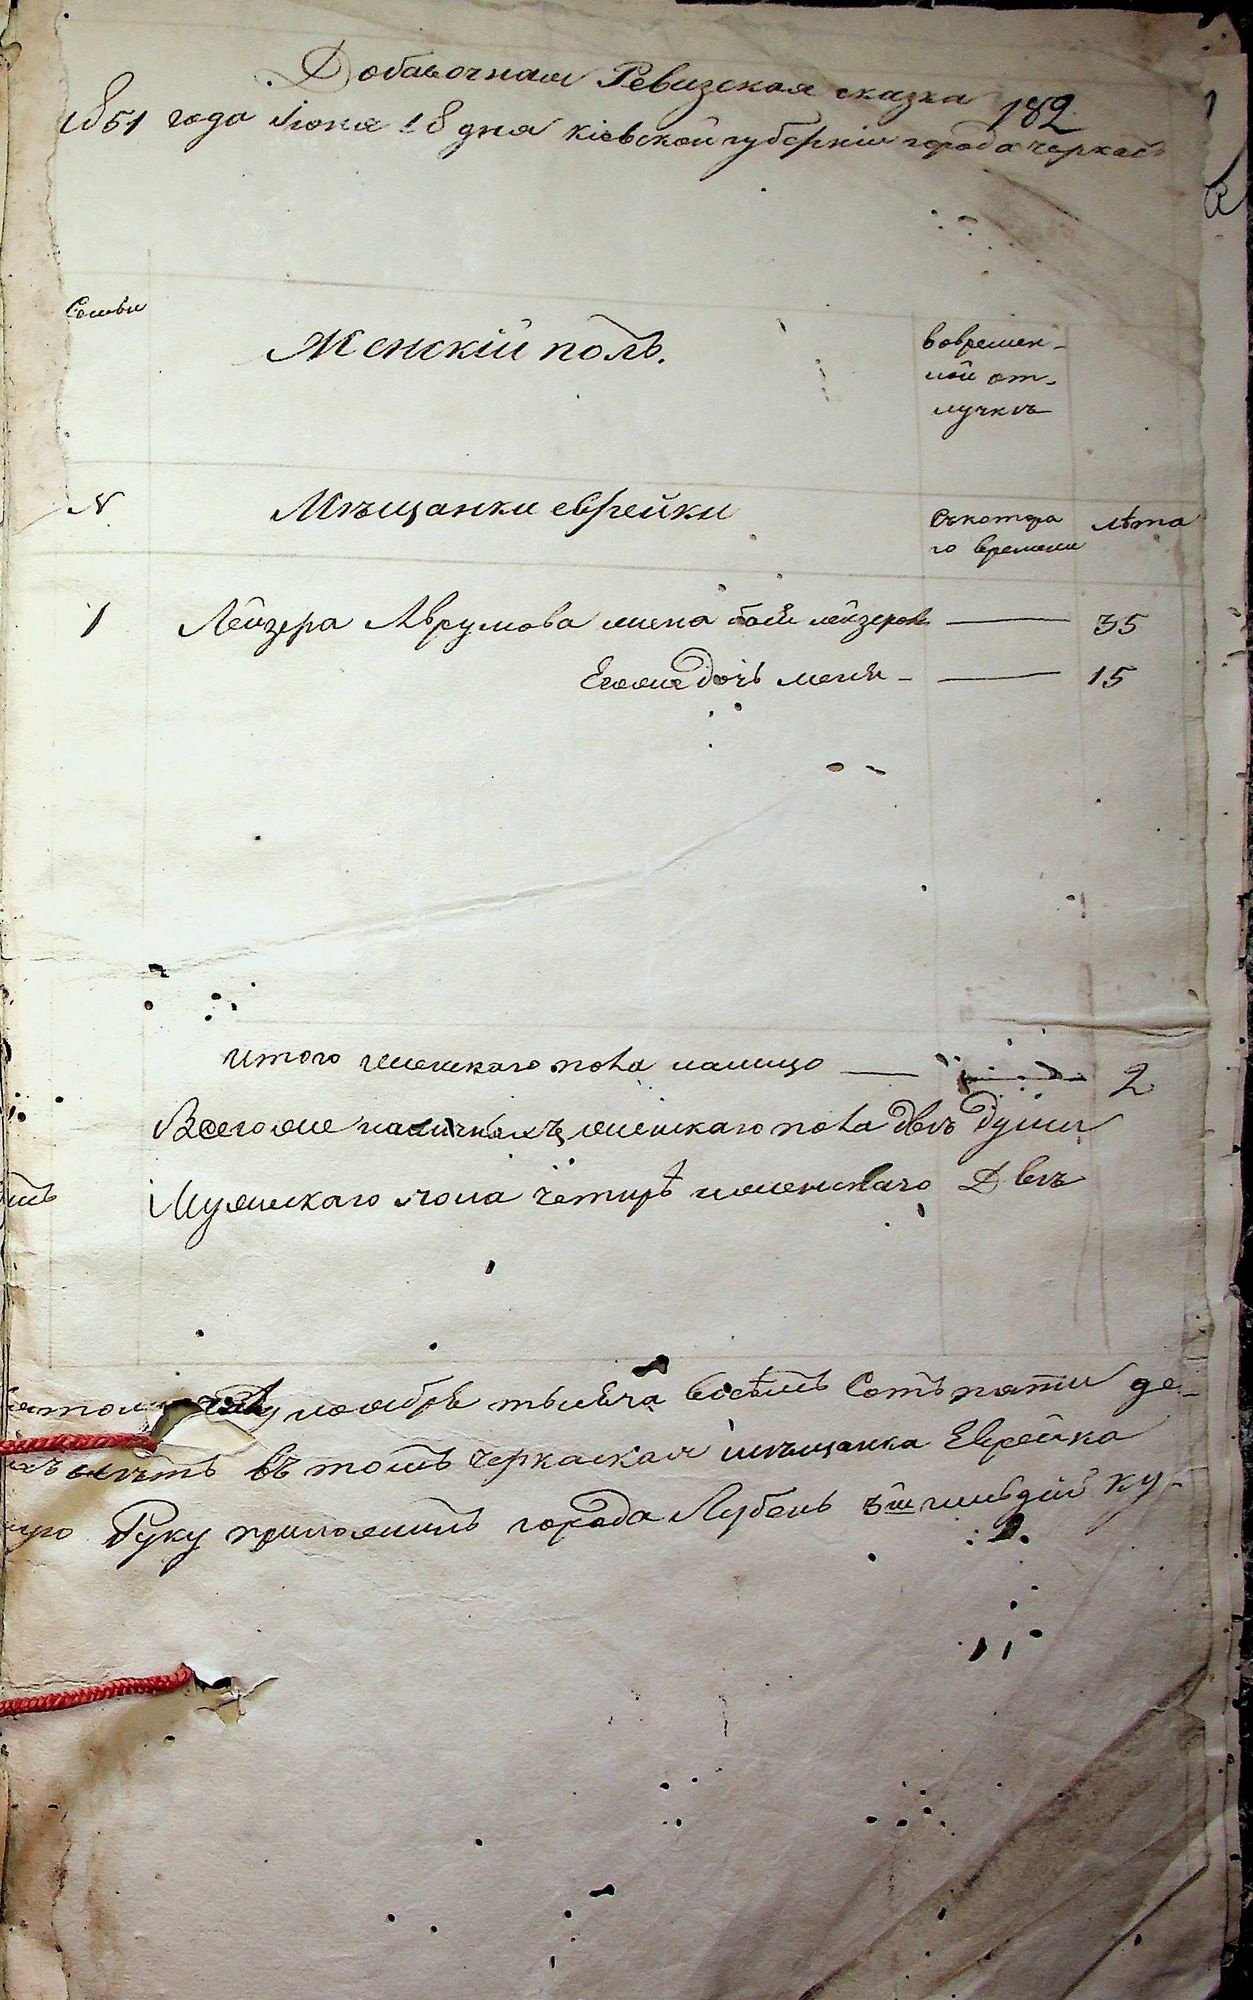 Добавочная Ревизская сказка
182
1851 года Июня 18 дня Кіевской губерніи города Черкасъ
Семьи
Женскій полъ.
Вовремен-
ной от-
лучкѣ
N
Мѣщанки еврейки
Съкотора
го времени
лѣта
1 Лейзера Аврумова жена лейзеров 35
Егоже дочь 15
итого женскаго пола налицо 2
Всегоже наличныхъ женскаго пола двѣ души
Мужескаго пола четырѣ иженскаго Двѣ
ноябрѣ тысяча восѣмъ Сотъ пяти де-
въ томъ черкаская мѣщанка Еврейка
Руку приложилъ города Лубенъ 3й гильдіи ку-